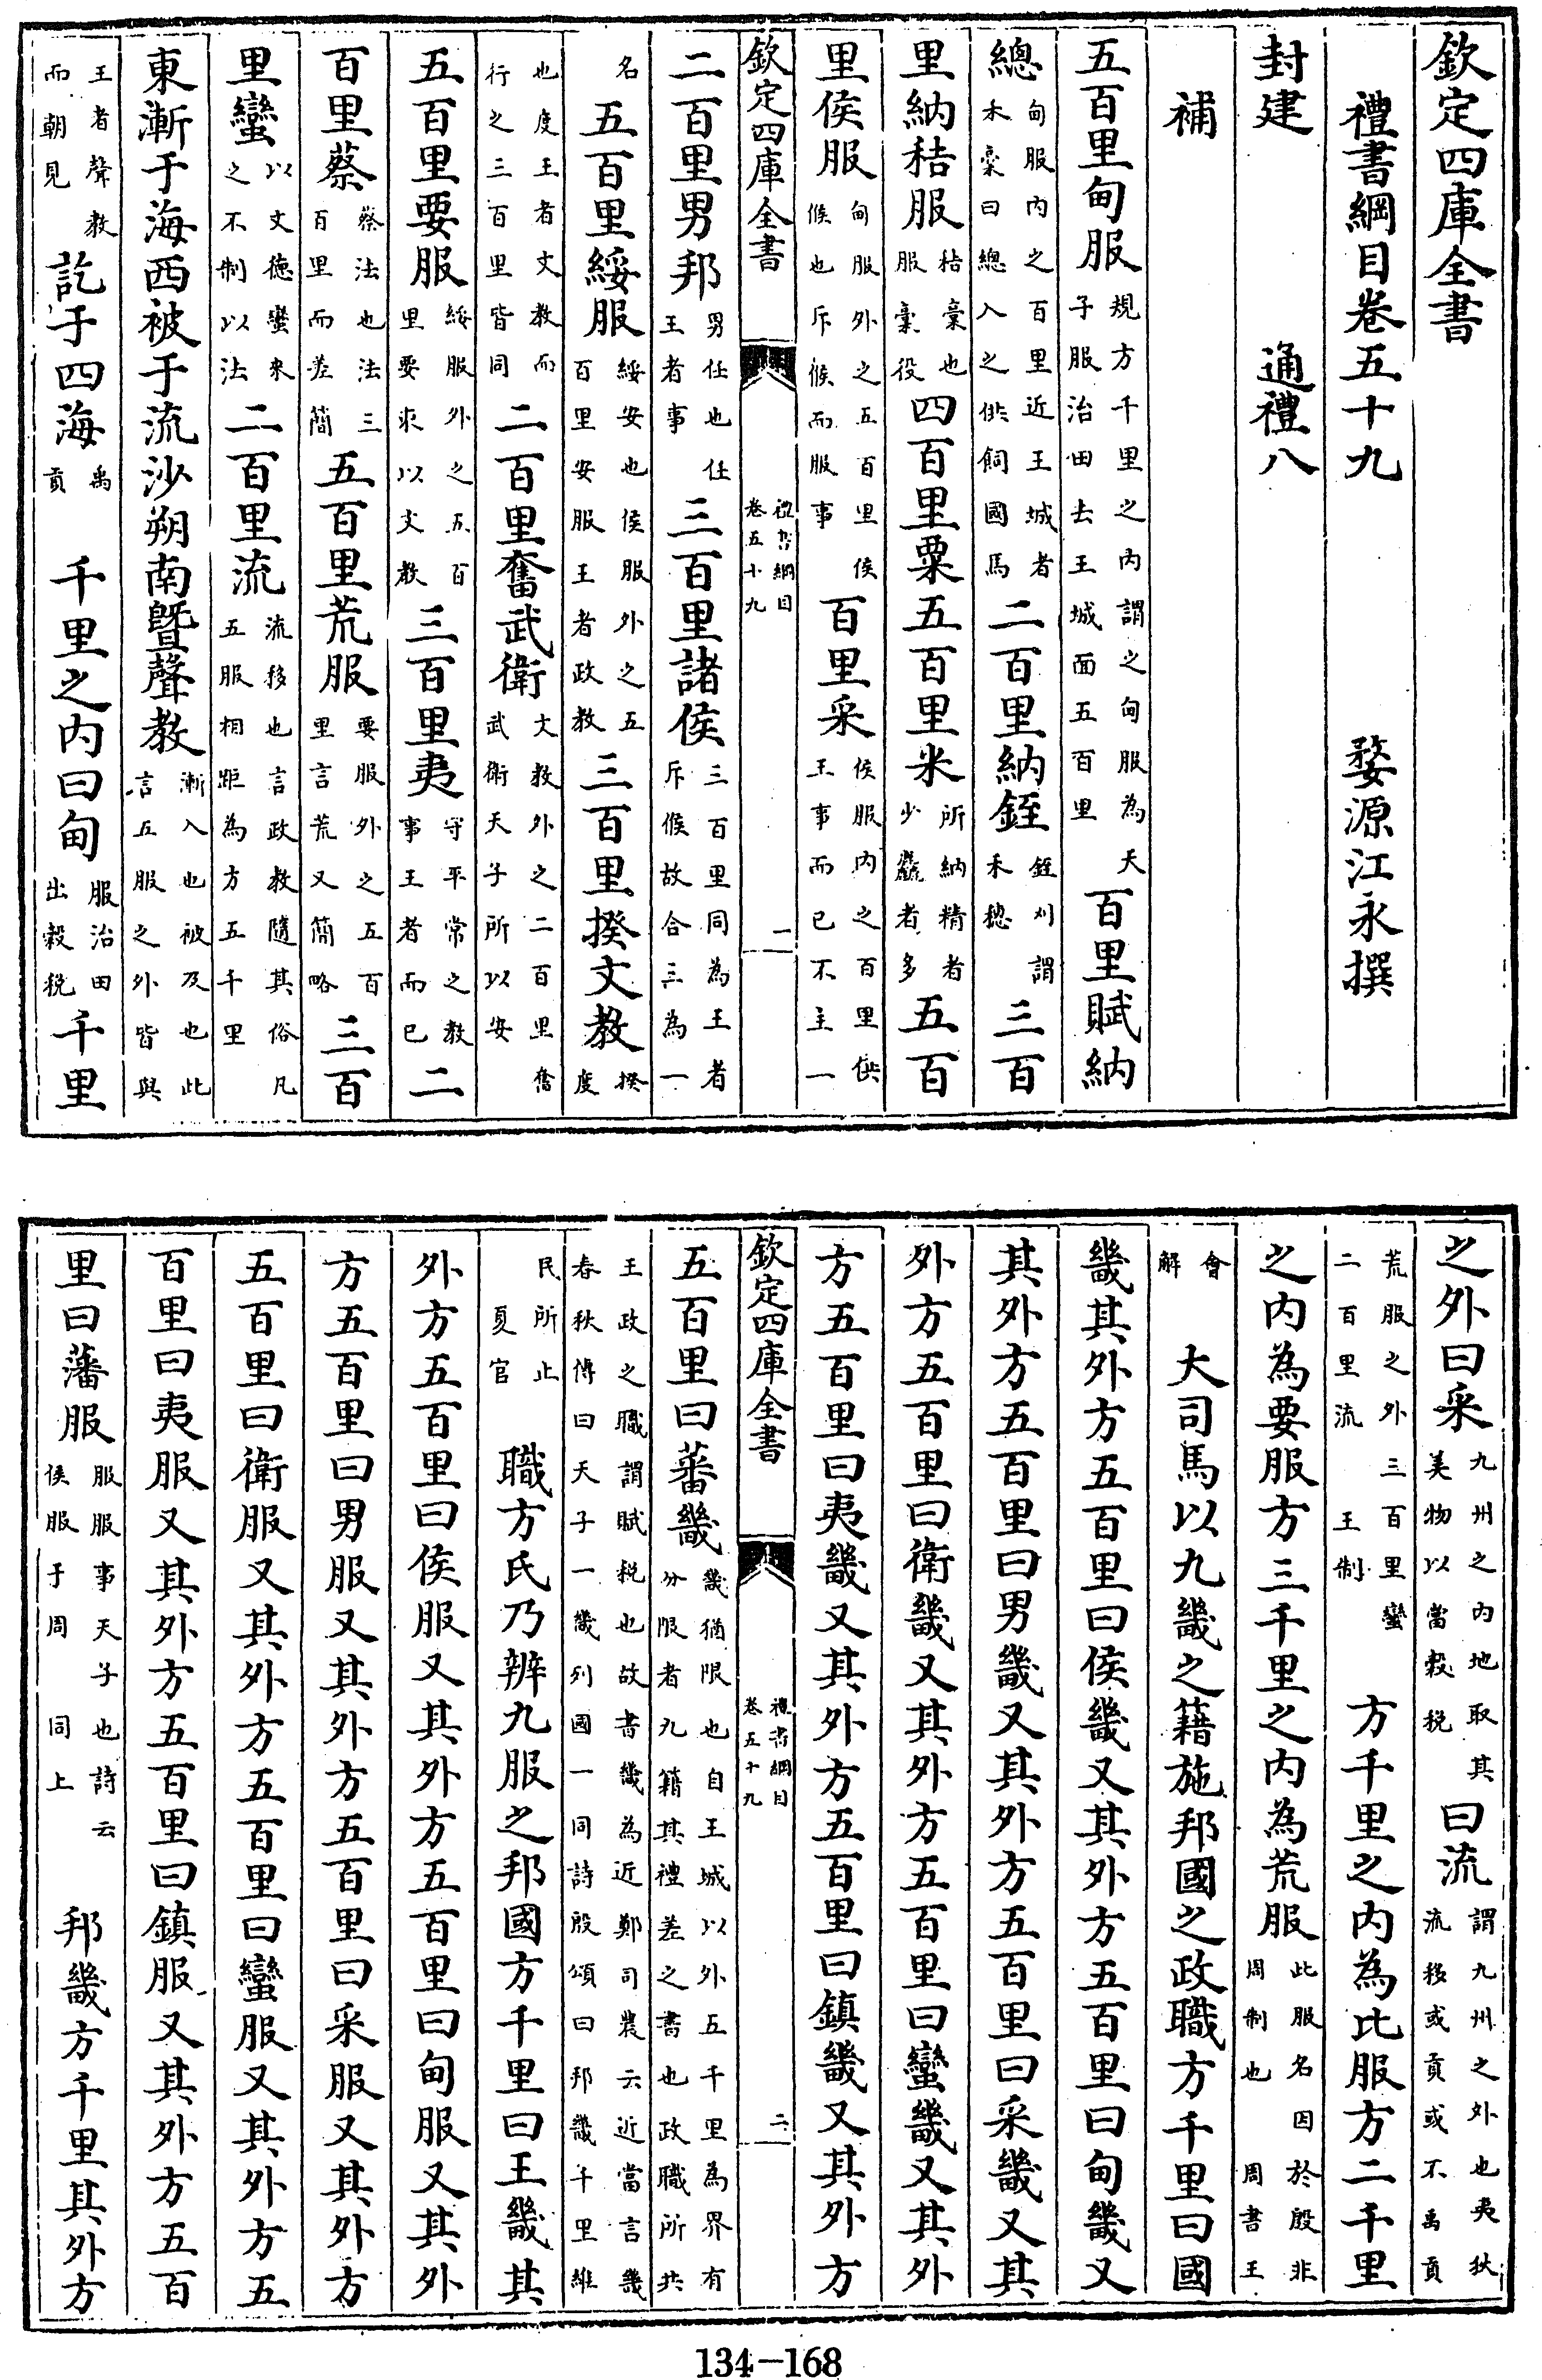 欽定四庫全書
禮書綱目卷五十九　婺源江永撰
封建　通禮八
補
五百里甸服規方千里之內謂之甸服為天子服治田去王城面五百里百里賦納
總甸服內之百里近王城者禾稾曰總入之供飼國馬二百里納銍銍刈謂禾穗三百
里納秸服秸稾也服稾役四百里粟五百里米所納精者少麤者多五百
里侯服甸服外之五百里侯候也斥候而服事百里采侯服內之百里供王事而已不主一
欽定四庫全書　禮書綱目卷五十九　一
二百里男邦男任也任王者事三百里諸侯三百里同為王者斥候故合三為一
名五百里綏服綏安也侯服外之五百里安服王者政教三百里揆文教揆度
也度王者文教而行之三百里皆同二百里奮武衛文教外之二百里奮武衛天子所以安
五百里要服綏服外之五百里要束以文教三百里夷守平常之教事王者而已二
百里蔡蔡法也法三百里而差簡五百里荒服要服外之五百里言荒又簡略三百
里蠻以文德蠻來之不制以法二百里流流移也言政教隨其俗凡五服相距為方五千里
東漸于海西被于流沙朔南暨聲教漸入也被及也此言五服之外皆與
王者聲教而朝見訖于四海禹貢　千里之內曰甸服治田出穀稅千里
之外曰采九州之內地取其美物以當穀稅曰流謂九州之外也夷狄流移或貢或不禹貢
荒服之外三百里蠻二百里流　王制　方千里之內為比服方二千里
之內為要服方三千里之內為荒服此服名因於殷非周制也　周書王
會解　大司馬以九畿之籍施邦國之政職方千里曰國
畿其外方五百里曰侯畿又其外方五百里曰甸畿又
其外方五百里曰男畿又其外方五百里曰采畿又其
外方五百里曰衛畿又其外方五百里曰蠻畿又其外
方五百里曰夷畿又其外方五百里曰鎮畿又其外方
欽定四庫全書　禮書綱目卷五十九　二
五百里曰蕃畿畿猶限也自王城以外五千里為界有分限者九籍其禮差之書也政職所共
王政之職謂賦稅也故書畿為近鄭司農云近當言畿春秋傳曰天子一畿列國一同詩殷頌曰邦畿千里維
民所止　夏官　職方氏乃辨九服之邦國方千里曰王畿其
外方五百里曰侯服又其外方五百里曰甸服又其外
方五百里曰男服又其外方五百里曰采服又其外方
五百里曰衛服又其外方五百里曰蠻服又其外方五
百里曰夷服又其外方五百里曰鎮服又其外方五百
里曰藩服服服事天子也詩云侯服于周　同上　邦畿方千里其外方
134-168